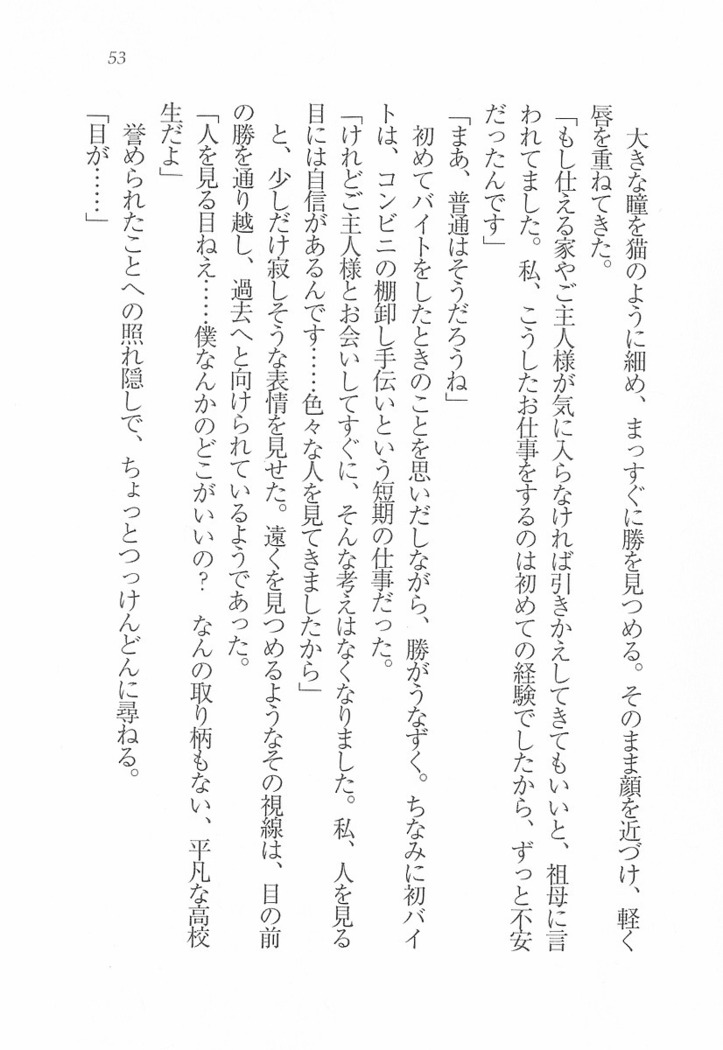 53
大きな瞳を猫のように細め、まっすぐに勝を見つめる。そのまま顔を近づけ、軽く
唇を重ねてきた。
「もし仕える家やご主人様が気に入らなければ引きかえしてきてもいいと、祖母に言
われてました。私、こうしたお仕事をするのは初めての経験でしたから、ずっと不安
だったんです」
「まあ、普通はそうだろうね」
初めてバイトをしたときのことを思いだしながら、勝がうなずく。ちなみに初バイ
トは、コンビニの棚卸し手伝いという短期の仕事だった。
「けれどご主人様とお会いしてすぐに、そんな考えはなくなりました。私、人を見る
目には自信があるんです……色々な人を見てきましたから」
と、少しだけ寂しそうな表情を見せた。遠くを見つめるようなその視線は、目の前
の勝を通り越し、過去へと向けられているようであった。
「人を見る目ねえ……僕なんかのどこがいいの？　なんの取り柄もない、平凡な高校
生だよ」
誉められたことへの照れ隠しで、ちょっとつっけんどんに尋ねる。
「目が……」